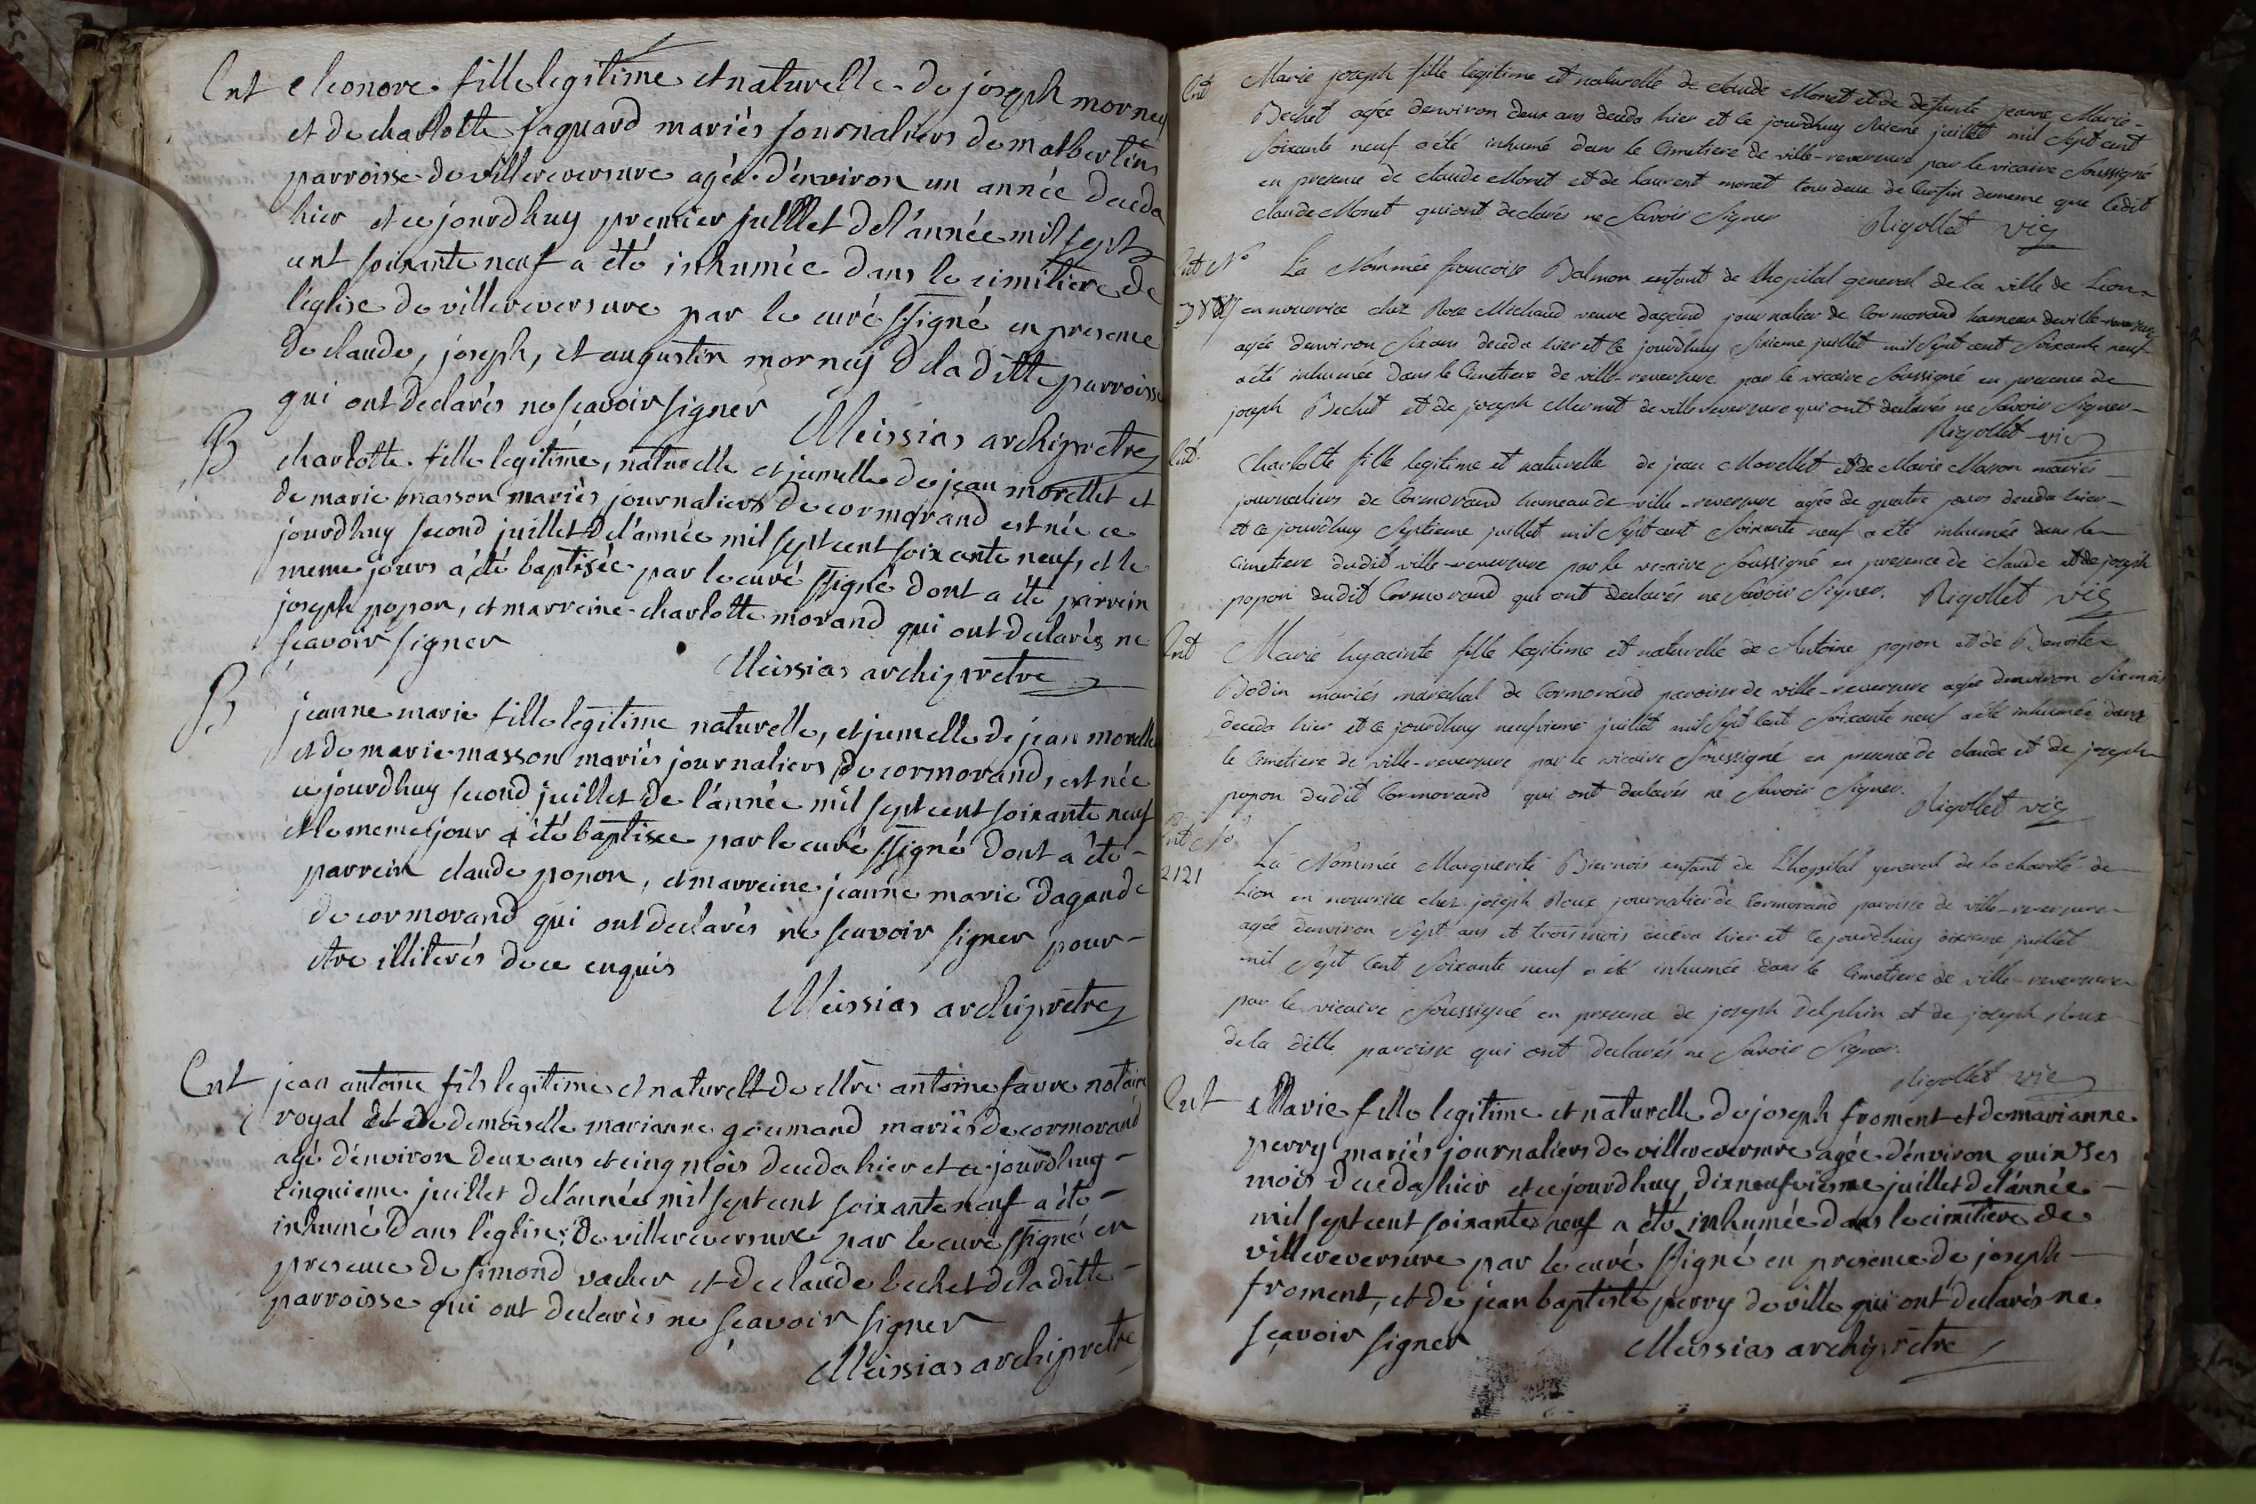 Ent eleonore fille legitime et naturelle de joseph mornay
et de charlotte jaquard mariés journaliers de malbertin
parroisse de villereversure agée d'environ un année deceda
hier et ce jourdhuy premier juillet de l'année mil sept
cent soixante neuf a été inhumée dans le cimitiere de
l'église de villereversure par le curé ssigné en presence
de claude, joseph, et augustin mornay de la ditte parroisse
qui ont declarés ne scavoir signer
Meissias archiprêtre
B charlotte fille legitime, naturelle et jumelle de jean morellet et
de marie masson mariés journaliers de cormorand est née ce
jourdhuy second juillet de l'année mil sept cent soixante neuf, et le
meme jours a été baptisée par le curé ssigné dont a été parrein
joseph popon, et marreine charlotte morand qui ont declarés ne
scavoir signer
Meissias archiprêtre
B jeanne marie fille legitime naturelle, et jumelle de jean morelle
et de marie masson mariés journaliers de cormorand, est née
ce jourdhuy second juillet de l'année mil sept cent soixante neuf
et le meme jour a été baptisee par le curé ssigné dont a été
parrein claude popon, et marreine jeanne marie dagand
de cormorand qui ont declarés ne scavoir signer pour
etre illiterés de ce enquis
Meissias archiprêtre
Ent jean antoine fils legitime et naturelle de Mtre antoine favre notaire
royal et de demoiselle marianne goumand mariés de cormorand
agé d'environ deux ans et cinq mois deceda hier et ce jourdhuy
cinquieme juillet de l'année mil sept cent soixante neuf a été
inhumé dans l'église de villereversure par le curé ssigné en
presence de simond vacher et de claude bechet de la ditte
parroisse qui ont declarés ne sçavoir signer
Meissias archiprêtre
Ent Marie joseph fille legitime et naturelle de claude Monet et de defunte jeanne Marie
Bechet agée denviron deux ans deceda hier et ce jourdhuy sixieme juillet mil sept cent
soixante neuf a été inhumé dans le Cimetiere de ville-reversure par le vicaire soussigné
en presence de claude Monet et de laurent monet tous deux de dememe que ledit
claude Monet qui ont declarés ne savoir signer Rigollet vic
Ent No La Nommée francoise Balmon enfant de lhopital general de la ville de Lion
en nourrice chez Rose Michaud veuve dagand journalier de Cormorand hameau de ville-reversure
agée denviron six ans deceda hier et ce jourdhuy sixieme juillet mil sept cent soixante neuf
a été inhumée dans le Cimetiere de ville-reversure par le vicaire soussigné en presence de
joseph Bechet et de joseph Mermet de ville reversure qui ont declarés ne savoir signer
Rigollet vic
Ent Charlotte fille legitime et naturelle de jean Morellet et de Marie Mason mariés
journaliers de Cormorand hameau de ville-reversure agée de quatre jours deceda hier
et ce jourdhuy septieme juillet mil sept cent soixante neuf a été inhumée dans le
Cimetiere dudit ville-reversure par le vicaire soussigné en presence de claude et de joseph
popon dudit Cormorand qui ont declarés ne savoir signer. Rigollet vic
Ent Marie hyacinte fille legitime et naturelle de Antoine popon et de Benoite
Bodin mariés marechal de Cormorand paroisse de ville-reversure agée denviron six mois
deceda hier et ce jourdhuy neufvieme juillet mil sept cent soixante neuf a été inhumée dans
le Cimetiere de ville-reversure par le vicaire soussigné en presence de claude et de joseph
popon dudit Cormorand qui ont declarés ne savoir signer.
Rigollet vic
Ent No
2121 La Nommée Marguerite Biernois enfant de Lhopital general de la charité de
Lion en nourrice chez joseph Roux journalier de Cormorand paroisse de ville-reversure
agée denviron sept ans et trois mois deceda hier et ce jourdhuy dixieme juillet
mil sept cent soixante neuf a été inhumée dans le Cimetiere de ville-reversure
par le vicaire soussigné en presence de joseph Delphin et de joseph Roux
de la ditte paroisse qui ont declarés ne savoir signer.
Rigollet vic
Ent Marie fille legitime et naturelle de joseph froment et de marianne
perry mariés journaliers de villereversure agée d'environ quinses
mois deceda hier et ce jourdhuy dixneufvieme juillet de l'année
mil sept cent soixante neuf a été inhumée dans le cimitiere de
villereversure par le curé ssigné en presence de joseph
froment, et de jean baptiste perry de ville qui ont declarés ne
sçavoir signer
Meissias archiprêtre